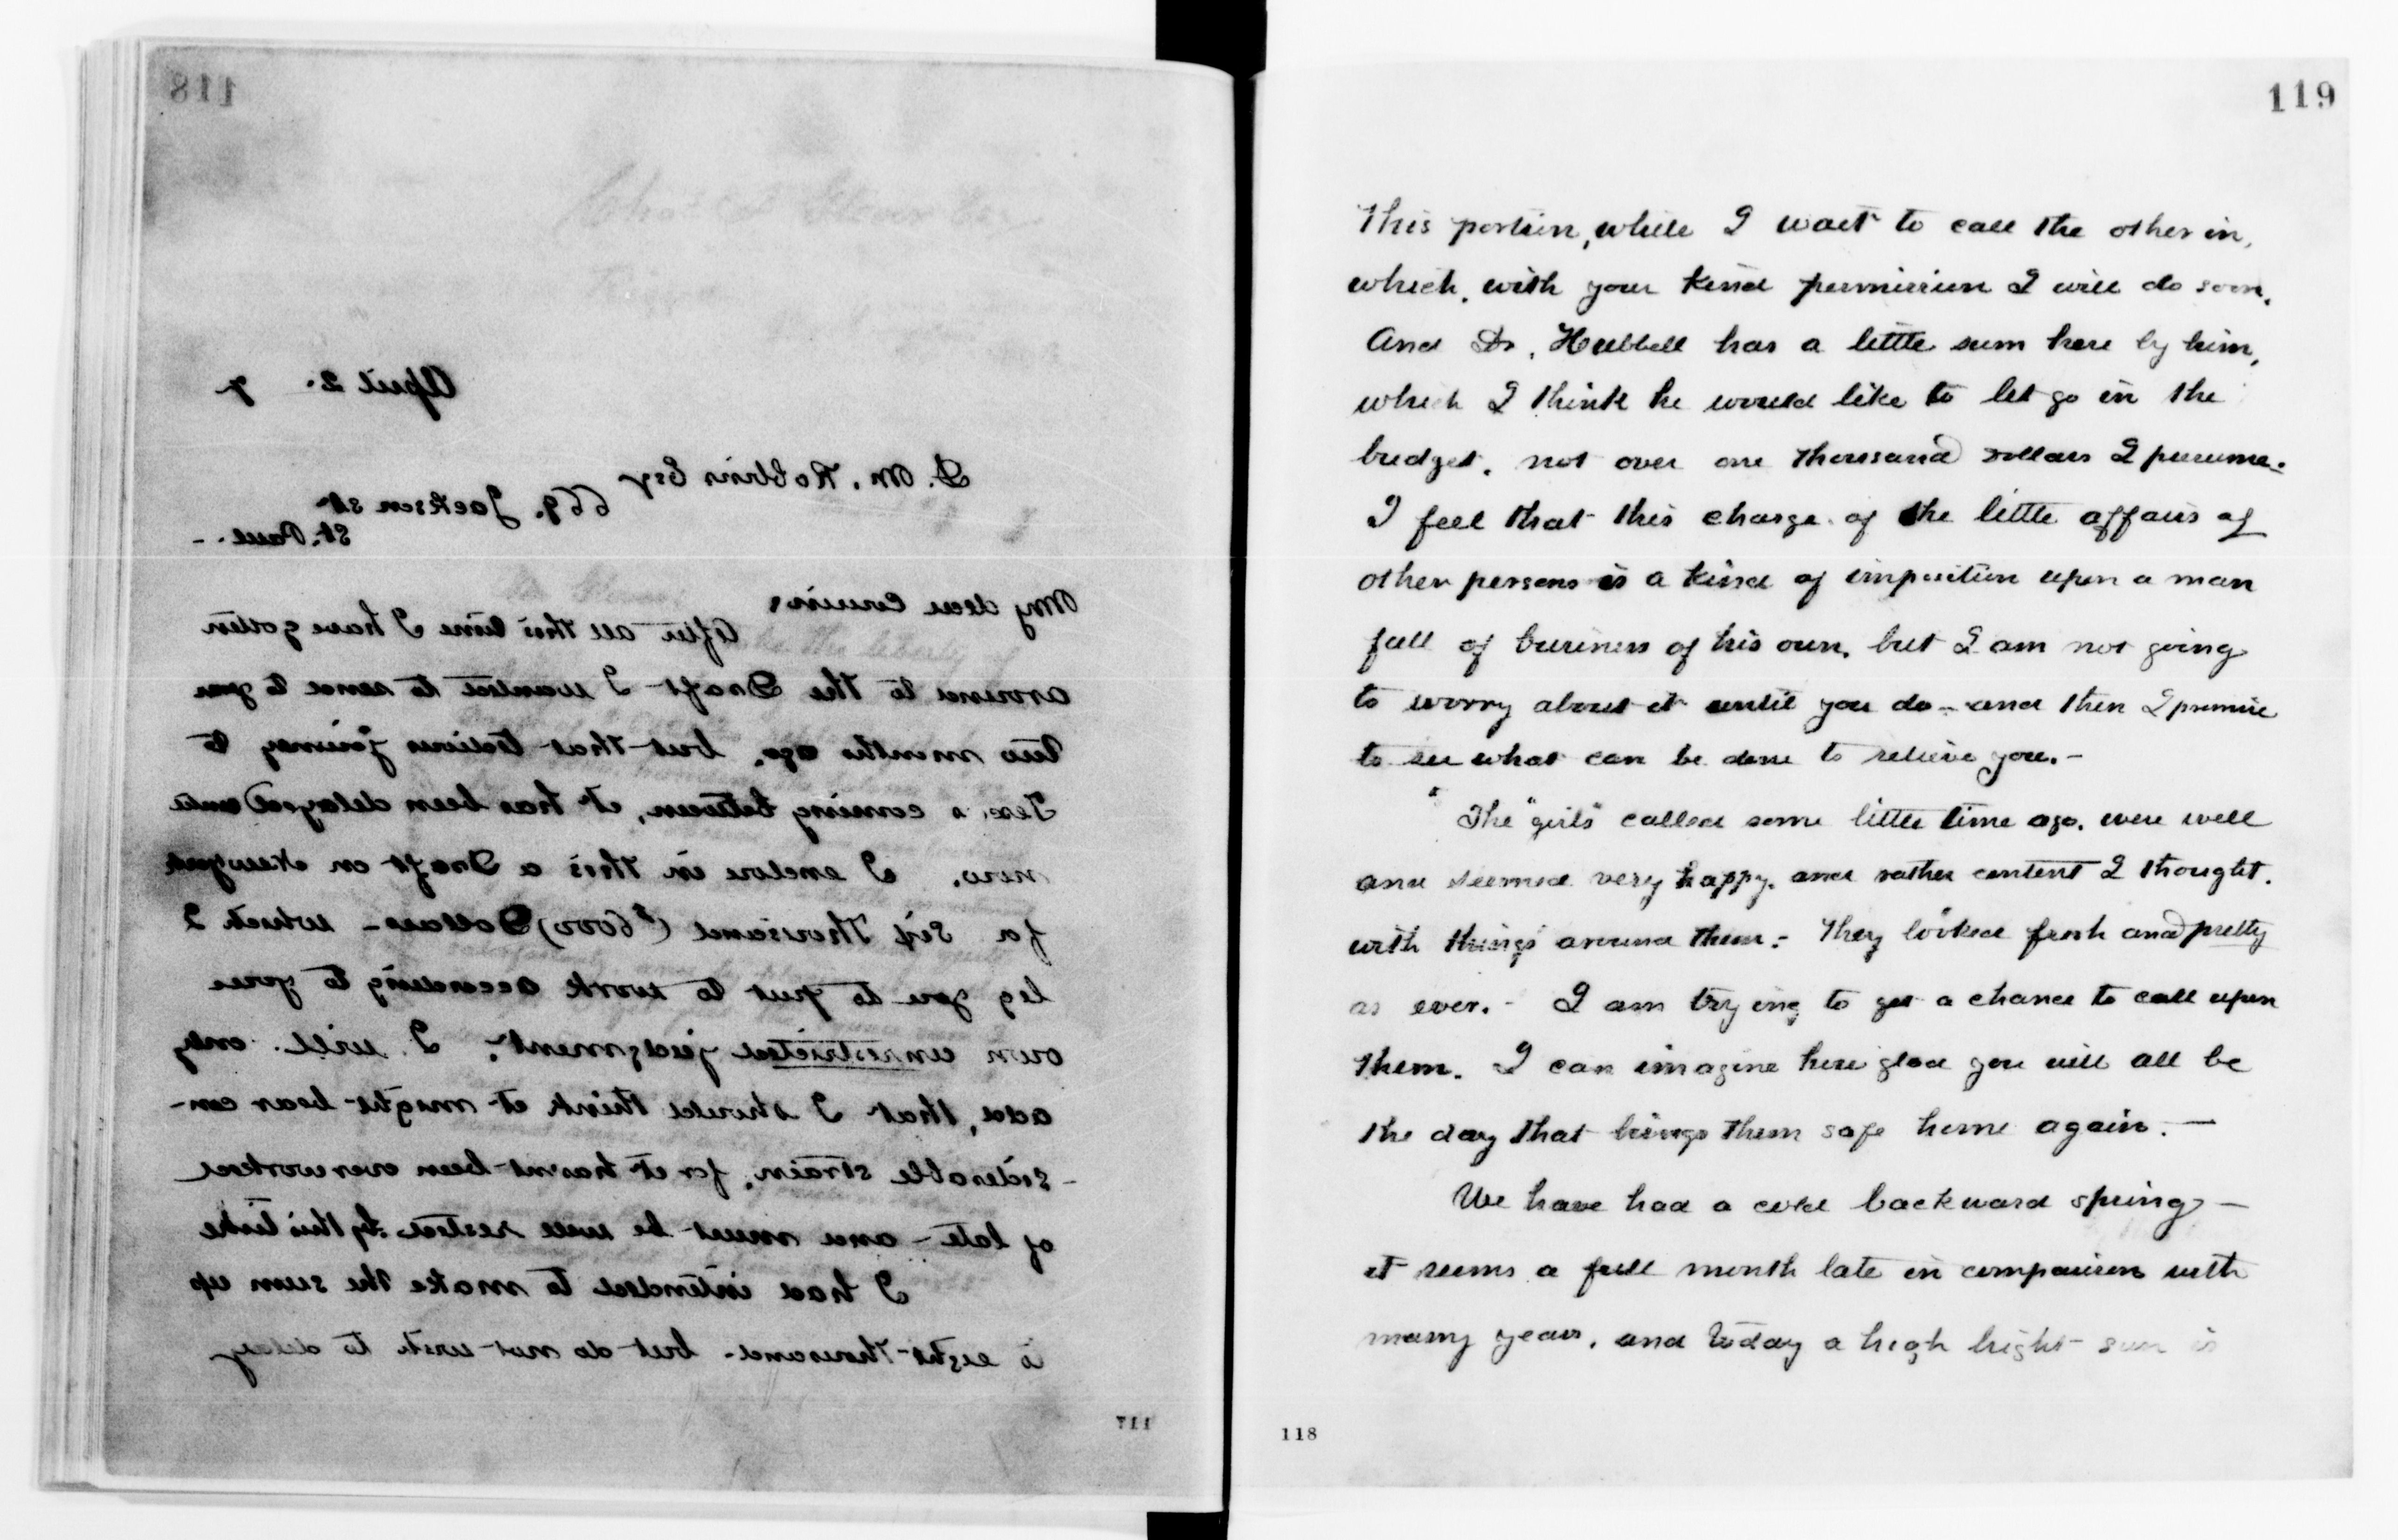 118
April 2. 7
D. M. Robbins Esq
669. Jackson St
St. Paul. -
My dear Cousin
After all this time I have gotten
around to the Draft I wanted to send to you
two months ago, but that tedious journey to
Texas coming between, it has been delayed until
now. I enclose in this a Draft on New York
for Six Thousand ($6000) Dollars - which I
beg you to put to work according to your
own unrestricted judgment. I will only
add, that I should think it might bear con-
-siderable strain, for it hasnt been overworked
of late - and must be well rested by this time
I had intended to make the sum up
to eight thousand - but do not wish to delay
117
119
this portion, while I wait to call the other in,
which, with your kind permission I will do soon.
And Dr. Hubbell has a little sum here by him,
which I think he would like to let go in the
budget, not over one thousand dollars I presume.
I feel that this charge of the little affairs of
other persons is a kind of imposition upon a man
full of business of his own, but I am not going
to worry about it until you do - and then I promise
to see what can be done to relieve you. -
The "girls" called some little time ago, were well
and seemed very happy, and rather content I thought,
with things around them. - They looked fresh and pretty
as ever. - I am trying to get a chance to call upon
them. I can imagine how glad you will all be
the day that brings them safe home again. -
We have had a cold backward spring -
it seems a full month late in comparison with
many years, and today a high bright sun is
118